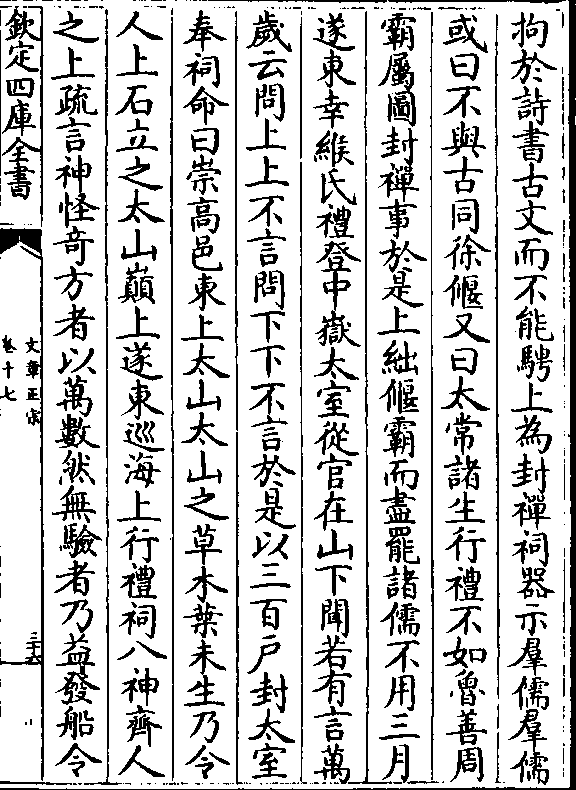 拘於詩書古文而不能騁上為封禪祠器示羣儒羣儒
或曰不與古同徐偃又曰太常諸生行禮不如魯善周
霸屬圖封禪事於是上絀偃霸而盡罷諸儒不用三月
遂東幸緱氏禮登中嶽太室從官在山下聞若有言萬
歲云問上上不言問下下不言於是以三百戶封太室
奉祠命曰崇高邑東上太山太山之草木葉未生乃令
人上石立之太山巔上遂東巡海上行禮祠八神齊人
之上疏言神怪奇方者以萬數然無驗者乃益發船令
欽定四庫全書
文章正宗
卷十七
三十六